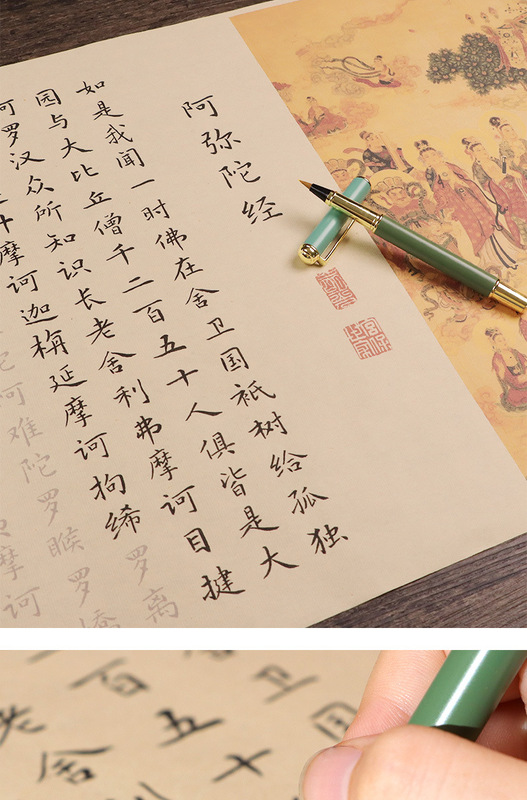 阿弥陀经
如是我闻一时佛在舍卫国祇树给孤独
园与大比丘僧千二百五十人俱皆是大
阿罗汉众所知识长老舍利弗摩诃目揵
摩诃迦栴延摩诃拘絺罗离
阿难陀罗睺罗憍
摩诃
卫国
百五十
老舍